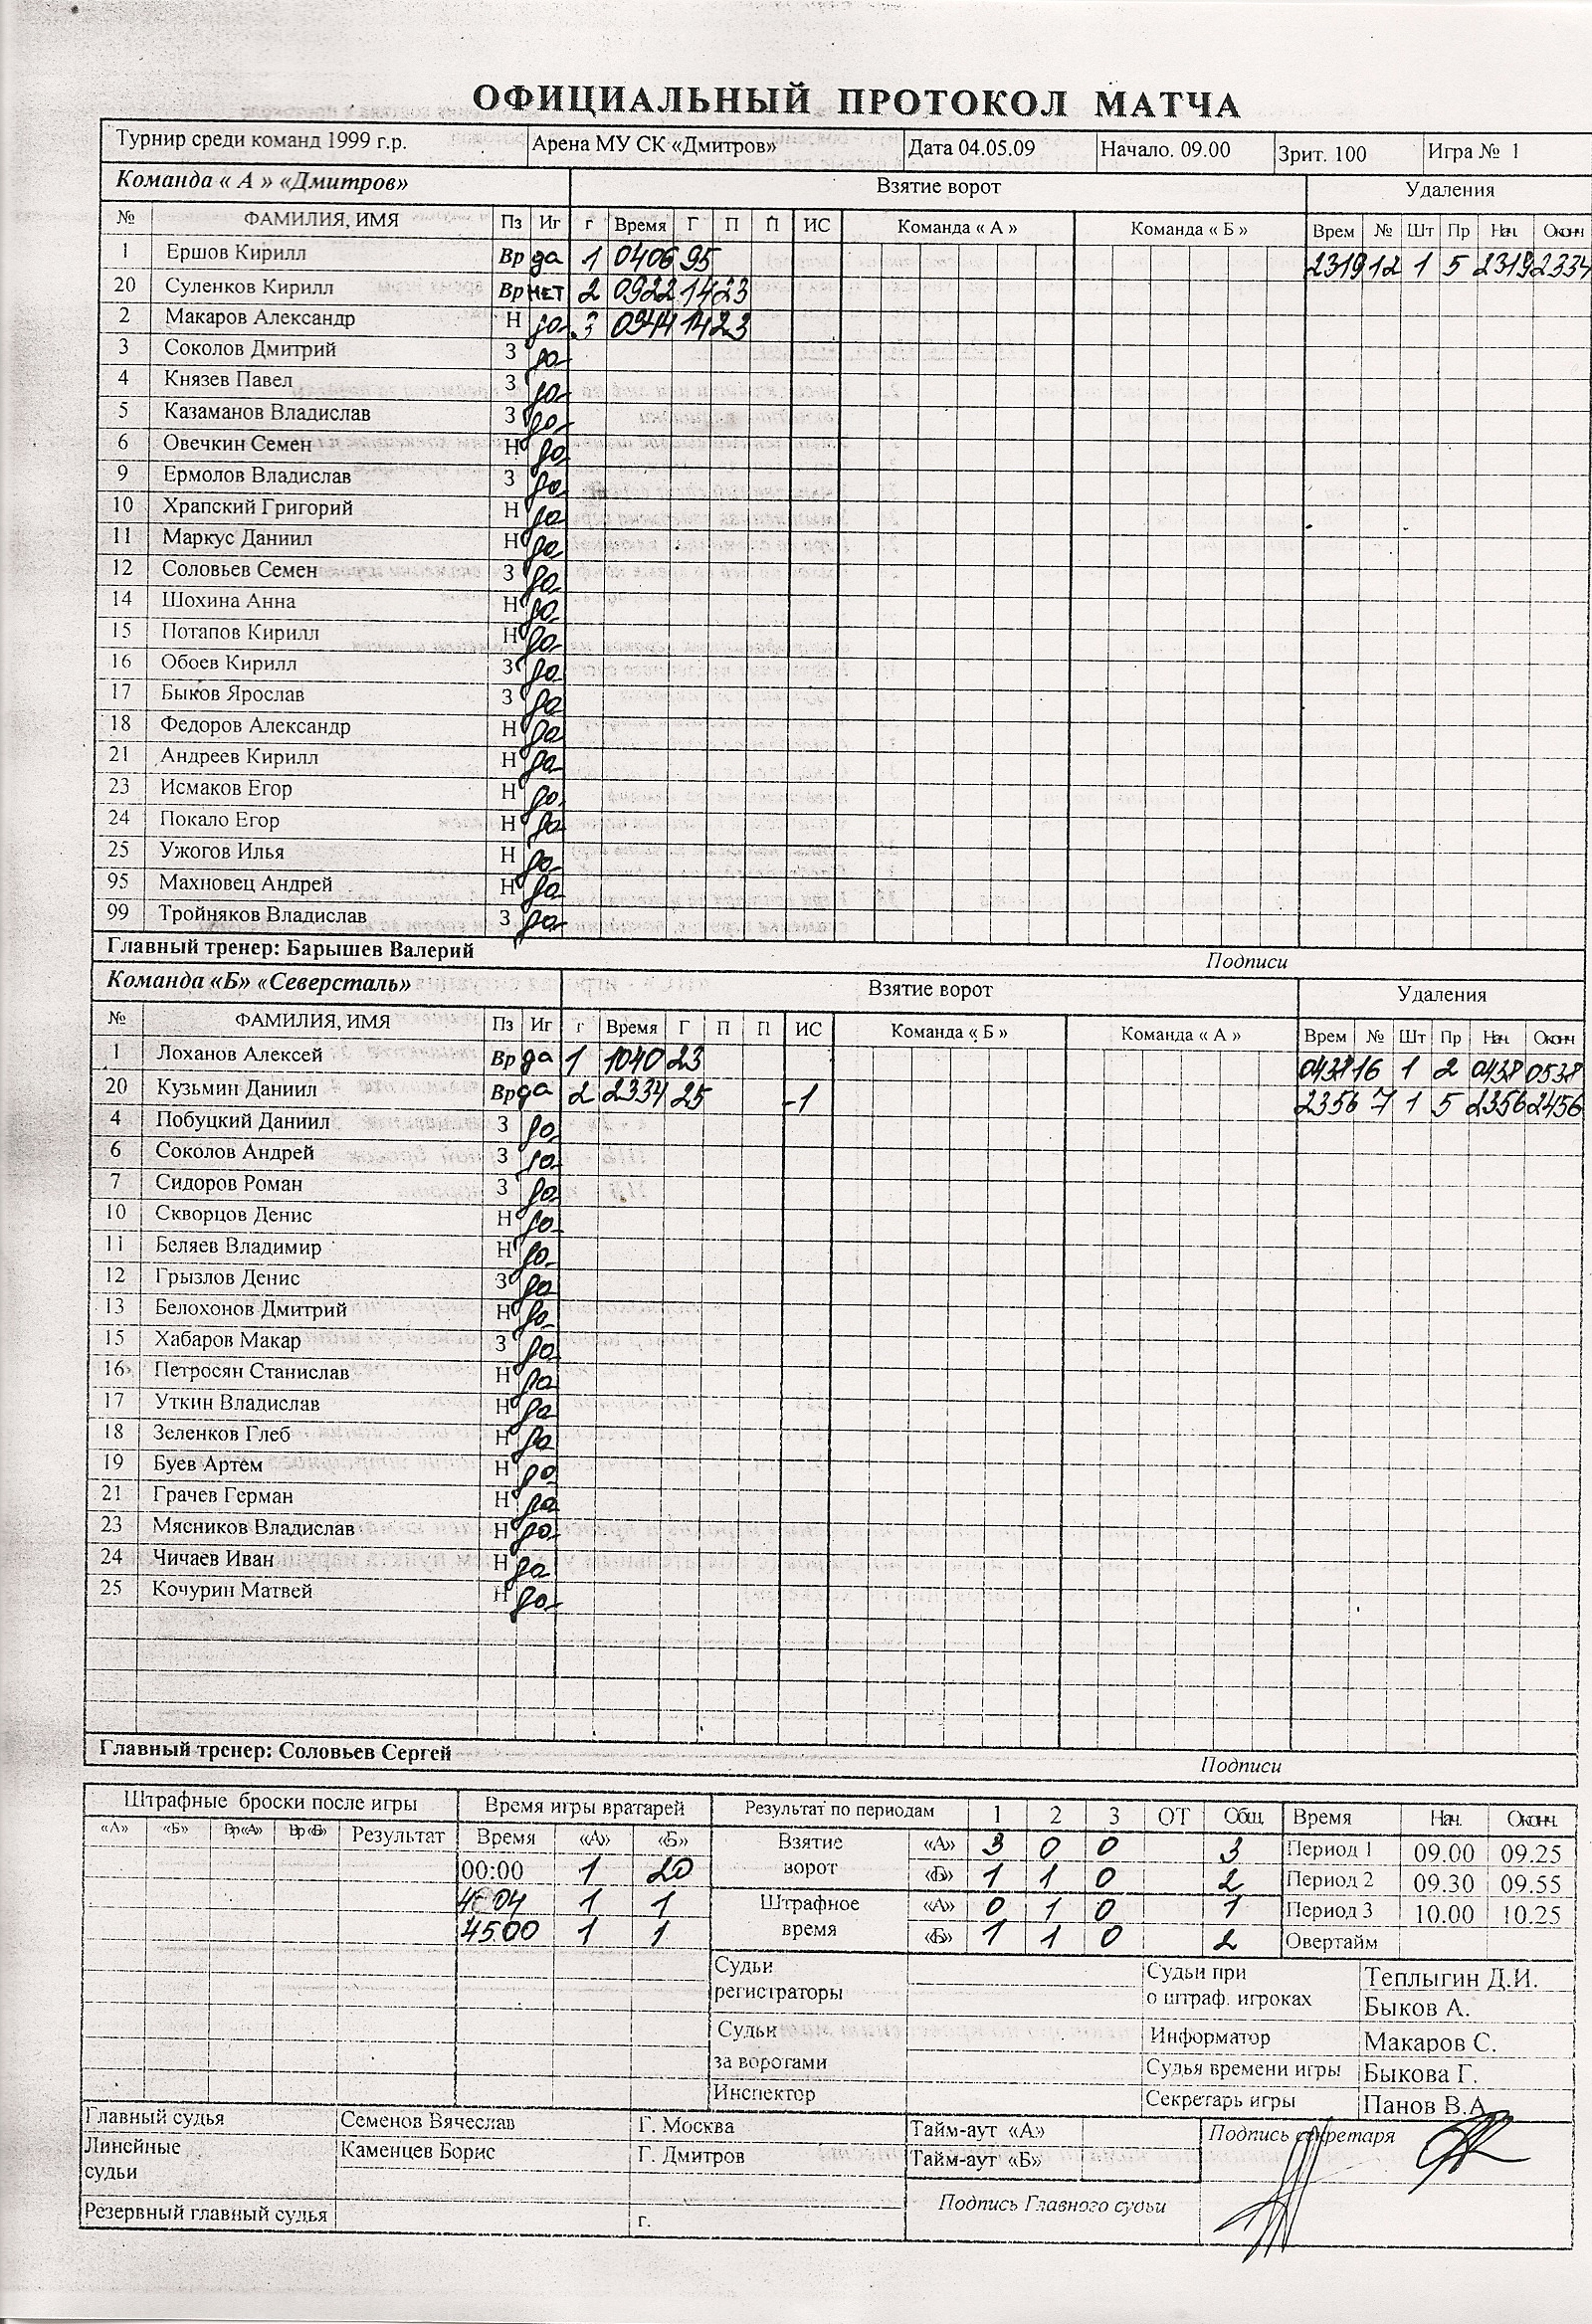 ОФИЦИАЛЬНЫЙ ПРОТОКОЛ МАТЧА
Турнир среди команд 1999 г.р. Арена МУ СК «Дмитров» Дата 04.05.09 Начало. 09.00 Зрит. 100 Игра № 1
Команда « А » «Дмитров» Взятие ворот Удаления
№ ФАМИЛИЯ, ИМЯ Пз Иг г Время Г П П ИС Команда « А » Команда « Б » Врем № Шт Пр Нач. Оконч
1 Ершов Кирилл Вр да 1 0406 95 2319 12 1 5 2319 2334
20 Суленков Кирилл Вр НЕТ 2 0922 14 23
2 Макаров Александр Н да 3 0944 14 23
3 Соколов Дмитрий З да
4 Князев Павел З да
5 Казаманов Владислав З да
6 Овечкин Семен Н да
9 Ермолов Владислав З да
10 Храпский Григорий Н да
11 Маркус Даниил Н да
12 Соловьев Семен З да
14 Шохина Анна Н да
15 Потапов Кирилл Н да
16 Обоев Кирилл З да
17 Быков Ярослав З да
18 Федоров Александр Н да
21 Андреев Кирилл Н да
23 Исмаков Егор Н да
24 Покало Егор Н да
25 Ужогов Илья Н да
95 Махновец Андрей Н да
99 Тройняков Владислав З да
Главный тренер: Барышев Валерий Подписи
Команда «Б» «Северсталь» Взятие ворот Удаления
№ ФАМИЛИЯ, ИМЯ Пз Иг г Время Г П П ИС Команда « Б » Команда « А » Врем № Шт Пр Нач. Оконч
1 Лоханов Алексей Вр да 1 1040 23 0438 16 1 2 0438 0538
20 Кузьмин Даниил Вр да 2 2334 25 -1 2356 7 1 5 2356 2456
4 Побуцкий Даниил З да
6 Соколов Андрей З да
7 Сидоров Роман З да
10 Скворцов Денис Н да
11 Беляев Владимир Н да
12 Грызлов Денис З да
13 Белохонов Дмитрий Н да
15 Хабаров Макар З да
16 Петросян Станислав Н да
17 Уткин Владислав Н да
18 Зеленков Глеб Н да
19 Буев Артем Н да
21 Грачев Герман Н да
23 Мясников Владислав Н да
24 Чичаев Иван Н да
25 Кочурин Матвей Н да
Главный тренер: Соловьев Сергей Подписи
Штрафные броски после игры Время игры вратарей Результат по периодам 1 2 3 ОТ Общ. Время Нач. Оконч.
«А» «Б» Вр«А» Вр«Б» Результат Время «А» «Б» Взятие ворот «А» 3 0 0 3 Период 1 09.00 09.25
00:00 1 20 «Б» 1 1 0 2 Период 2 09.30 09.55
1 1 Штрафное время «А» 0 1 0 1 Период 3 10.00 10.25
45.00 1 1 «Б» 1 1 0 2 Овертайм
Судьи регистраторы Судьи при о штраф. игроках Теплыгин Д.И.
Быков А.
Судьи за воротами Информатор Макаров С.
Судья времени игры Быкова Г.
Инспектор Секретарь игры Панов В.А.
Главный судья Семенов Вячеслав Г. Москва Тайм-аут «А» Подпись секретаря
Линейные судьи Каменцев Борис Г. Дмитров Тайм-аут «Б»
Подпись Главного судьи
Резервный главный судья г.